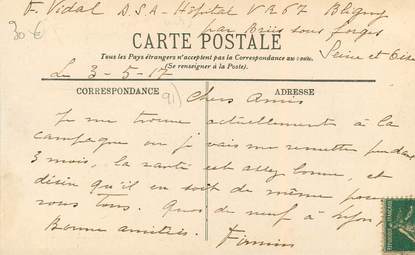 F. Vidal D.S.A - Hôpital VR67 Bligny
par Briis sous forges
Seine et Oise
30 €
CARTE POSTALE
Tous les Pays étrangers n'acceptent pas la Correspondance au verso.
(Se renseigner à la Poste.)
Le 3-5-17
CORRESPONDANCE
ADRESSE
91)
Chers Amis
Je me trouve actuellement à la
campagne ou je vais me remettre pendant
3 mois, la santé est assez bonne, et
désire qu'il en soit de même pour
vous tous. Quoi de neuf à Lyon,
Bonne amitiés. Firmin